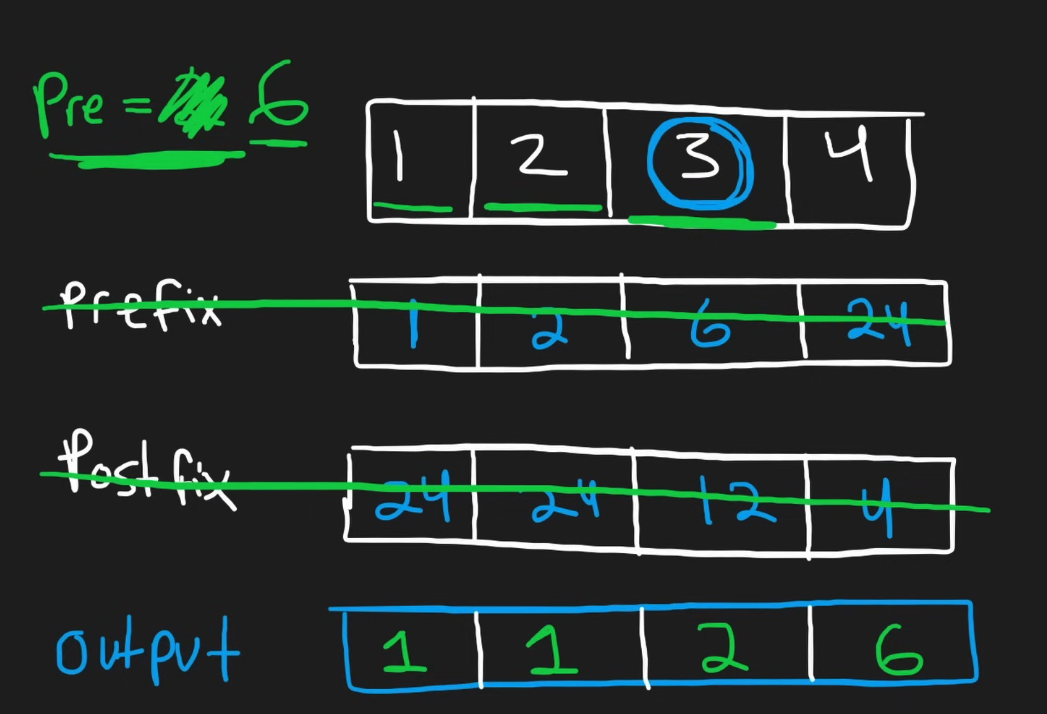 Pre = 6
1 2 3 4
Prefix 1 2 6 24
Postfix 24 24 12 4
output 1 1 2 6